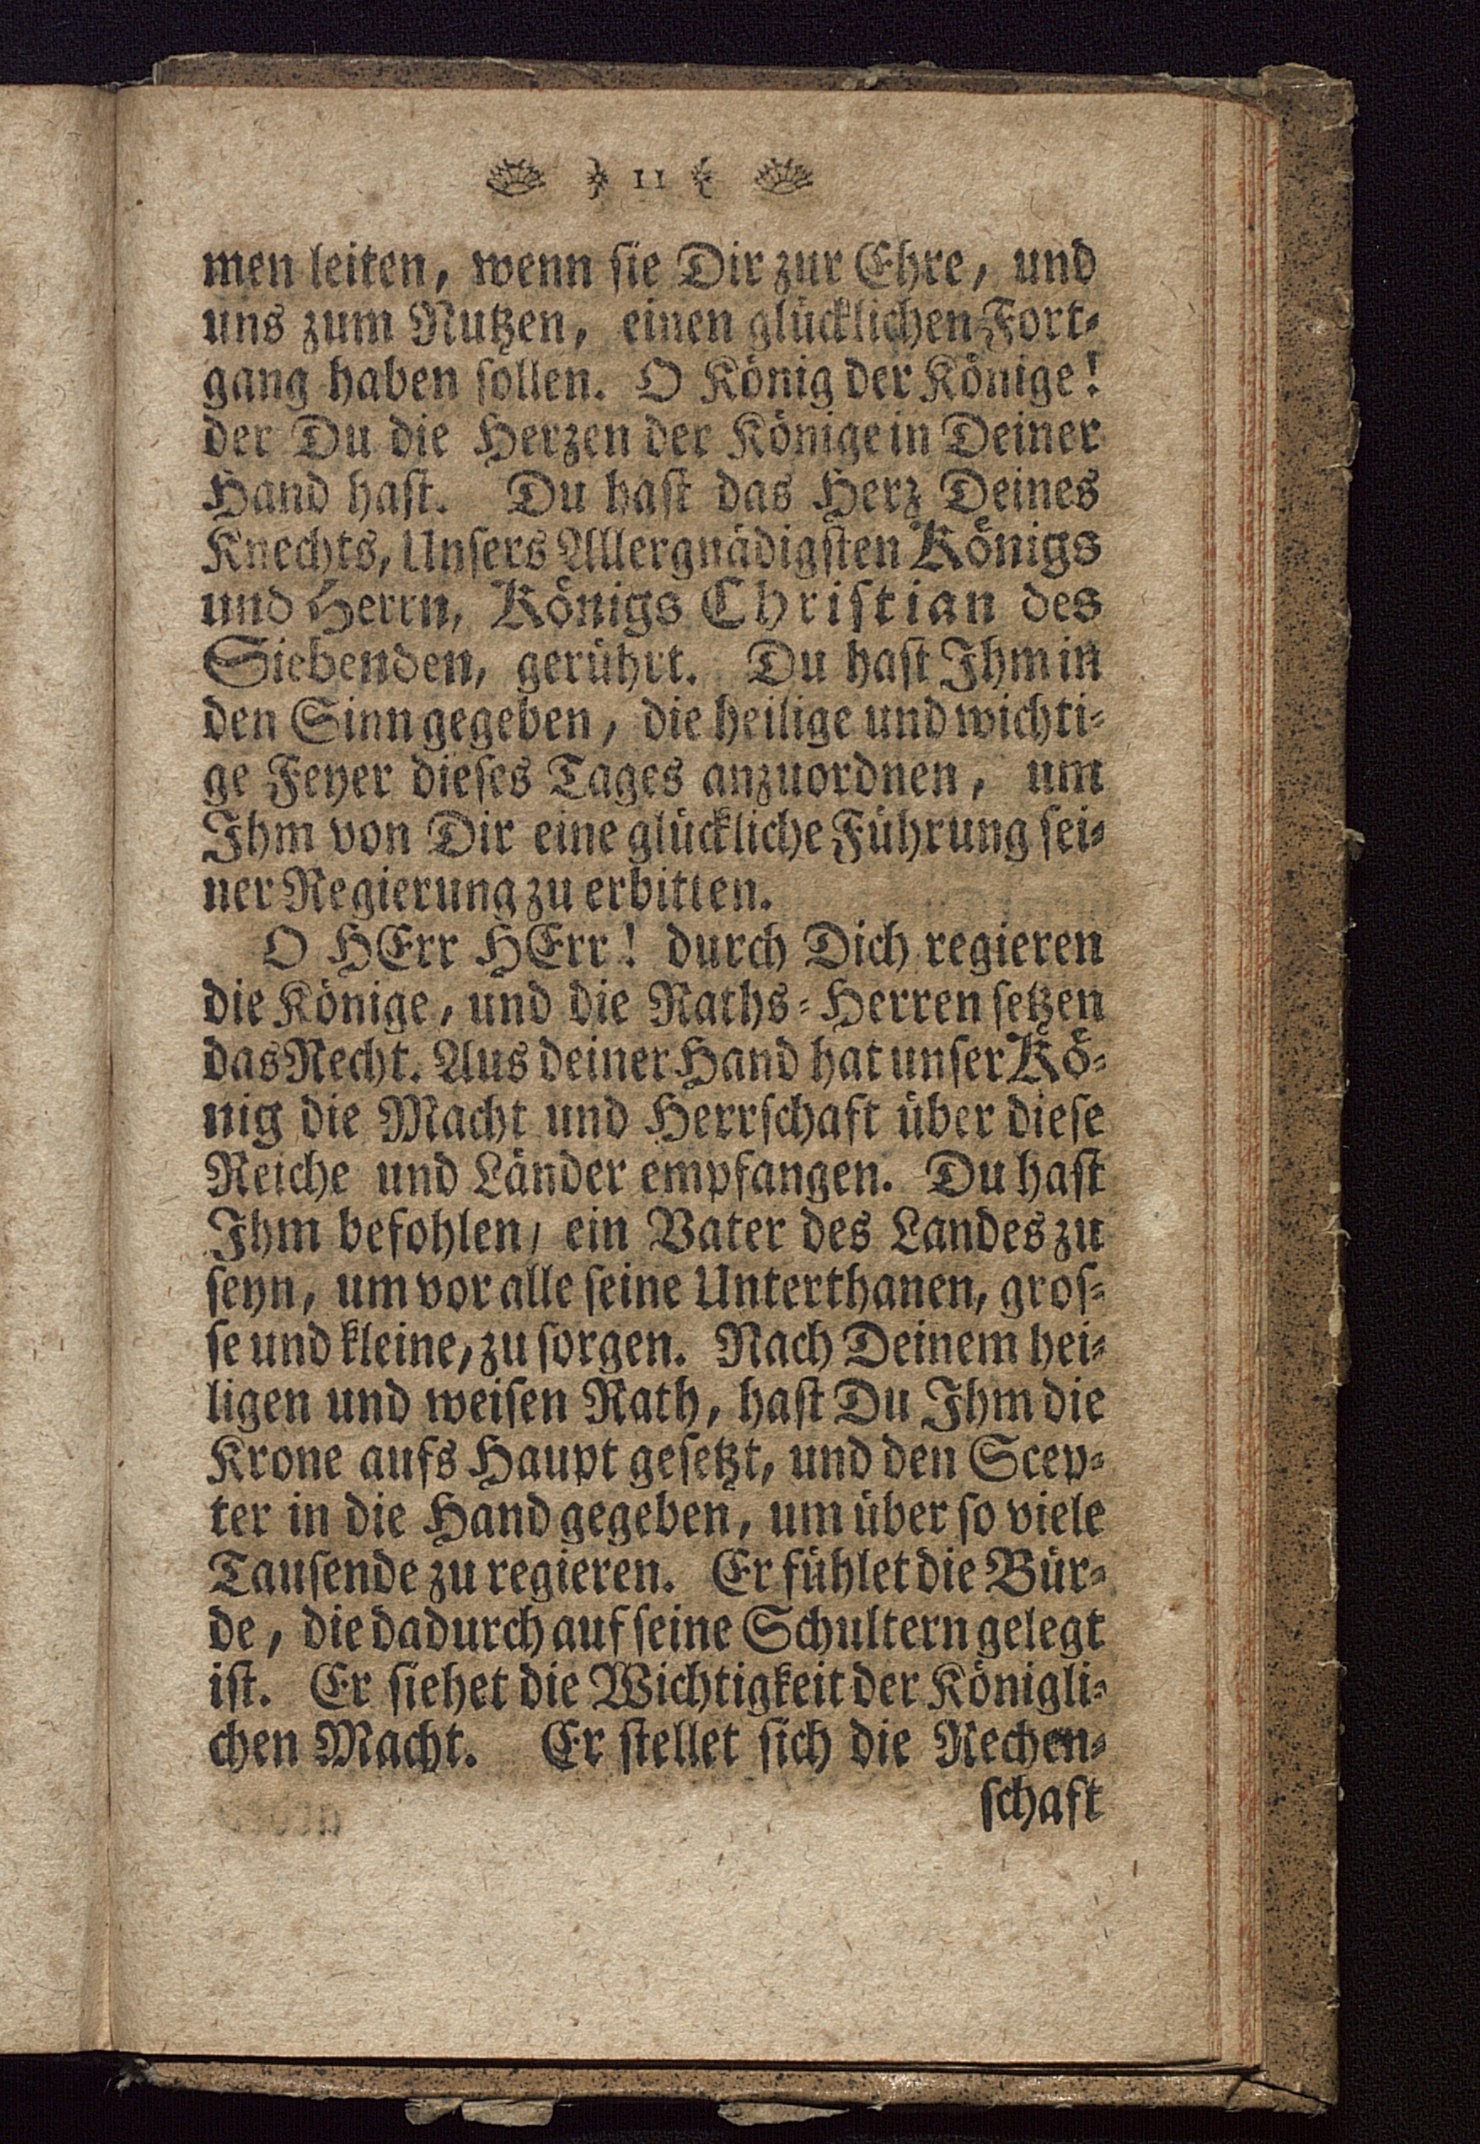 11
men leiten, wenn sie Dir zur Ehre, und
uns zum Nutzen, einen glücklichen Fort-
gang haben sollen. O König der Könige!
der Du die Herzen der Könige in Deiner
Hand hast. Du hast das Herz Deines
Knechts, Unsers Allergnädigsten Königs
und Herrn, Königs Christian des
Siebenden, gerührt. Du hast Ihm in
den Sinn gegeben, die heilige und wichti-
ge Feyer dieses Tages anzuordnen, um
Ihm von Dir eine glückliche Führung sei-
ner Regierung zu erbitten.
O HErr HErr! durch Dich regieren
die Könige, und die Raths-Herren setzen
das Recht. Aus deiner Hand hat unser Kö-
nig die Macht und Herrschaft über diese
Reiche und Länder empfangen. Du hast
Ihm befohlen, ein Vater des Landes zu
seyn, um vor alle seine Unterthanen, gros-
se und kleine, zu sorgen. Nach Deinem hei-
ligen und weisen Rath, hast Du Ihm die
Krone aufs Haupt gesetzt, und den Scep-
ter in die Hand gegeben, um über so viele
Tausende zu regieren. Er fühlet die Bür-
de, die dadurch auf seine Schultern gelegt
ist. Er siehet die Wichtigkeit der Königli-
chen Macht. Er stellet sich die Rechen-
schaft